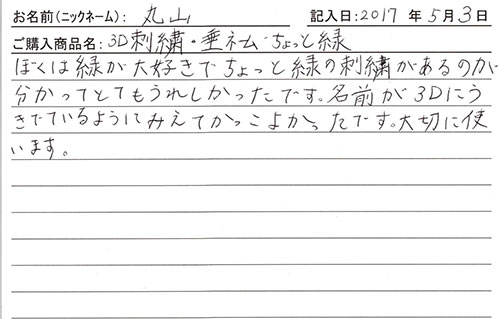 お名前(ニックネーム): 丸山 記入日:2017 年 5月 3日
ご購入商品名: 3D刺繍・垂ネーム ちょっと緑
ぼくは緑が大好きでちょっと緑の刺繍があるのが
分かってとてもうれしかったです。名前が3Dにう
きでているようにみえてかっこよかったです。大切に使
います。